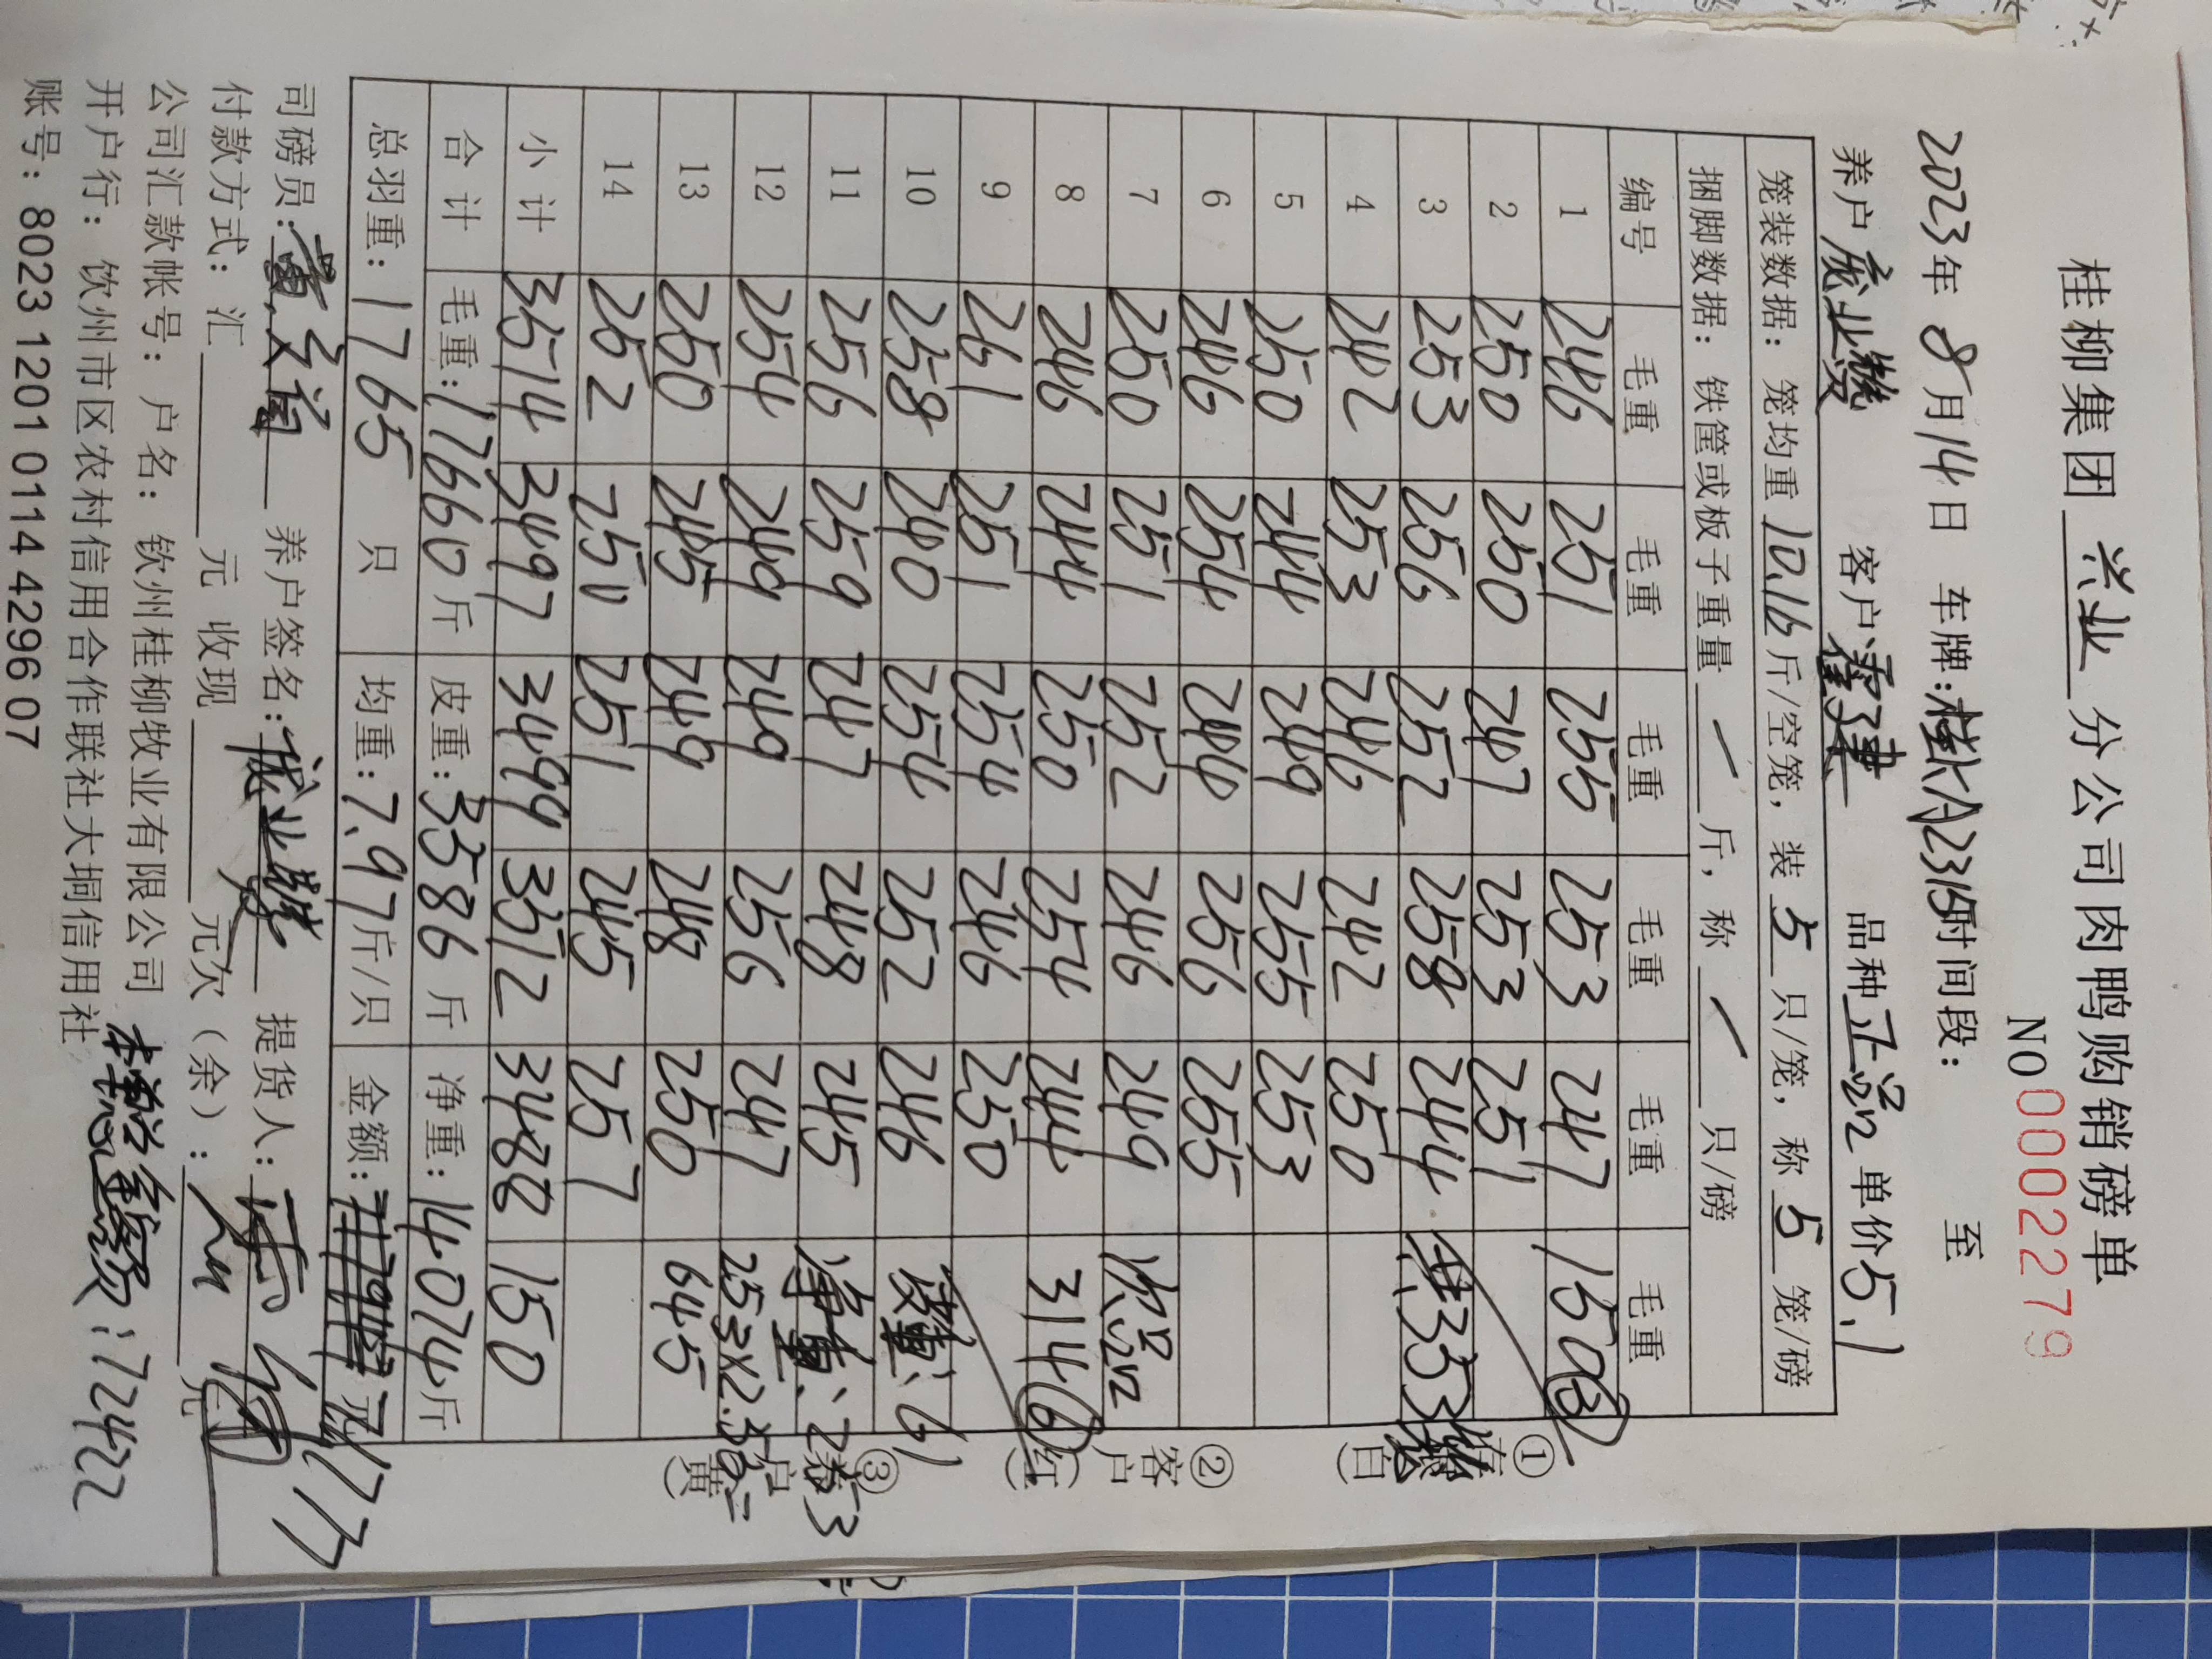 桂柳集团 兴业 分公司肉鸭购销磅单
NO 0002279
2023年 8月14日 车牌:桂A2315 时间段: 至
养户 客户 品种 正品 单价 5.1
笼装数据: 笼均重 10.16 斤/空笼, 装 5 只/笼, 称 5 笼/磅
捆脚数据: 铁筐或板子重量 / 斤, 称 / 只/磅
编号 毛重 毛重 毛重 毛重 毛重 毛重
1 246 251 255 253 247 150③
2 250 250 247 253 251
3 253 256 252 258 244 共353
4 242 253 246 242 250
5 250 244 249 255 253
6 246 254 244 256 255
7 250 251 252 246 249 次品
8 246 244 250 254 244 314⑥
9 261 251 254 246 250
10 258 240 254 252 246 皮重:61
11 256 259 247 248 245 净重:253
12 254 249 249 256 247 253×2.55=
13 250 245 249 248 250 645
14 252 250 251 245 257
小计 3514 3497 3499 3512 3488 150
合计 毛重:17660斤 皮重:3586斤 净重:14074斤
总羽重: 1765 只 均重:7.97斤/只 金额: 元
71777
① (白) ②客户(红) ③ 户(黄)
司磅员: 养户签名: 提货人:
付款方式: 汇 元 收现 元 欠(余): 元
公司汇款帐号: 户名: 钦州桂柳牧业有限公司
:72422
开户行: 钦州市区农村信用合作联社大垌信用社
账号: 8023 1201 0114 4296 07